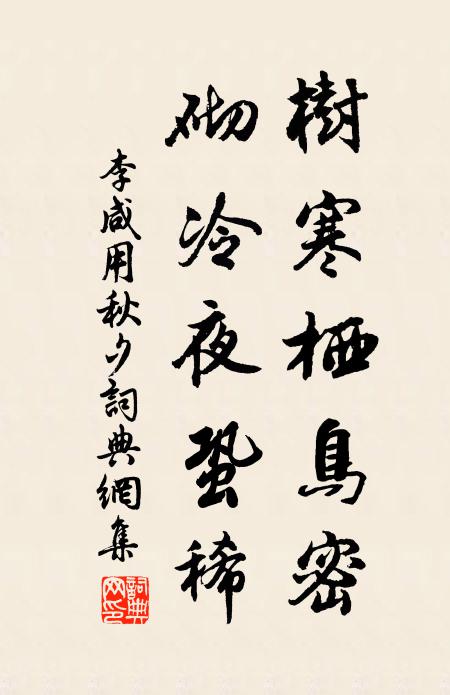 樹寒栖鳥密
砌冷夜蛩稀
李咸用秋夕詞典網集
詞典網印